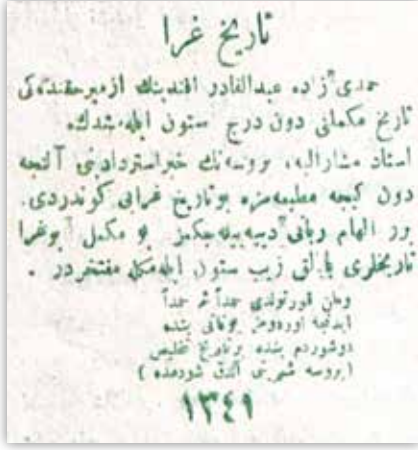 تاریخ غرا
حمدی زاده عبدالقادر افندینك ازمیر حقنده‌كی
تاریخ مكملنی دون درج ستون ایله‌مشدك.
استاد مشارالیه، بروسه‌نك خبر استردادینی آلنجه
دون كیجه مطبعه‌مزه بو تاریخ غرایی كوندردی.
بر الهام ربانی دییه‌بیله‌جكمز بو مكمل و غرا
تاریخلری یا زیب ستون ایله‌مكله مفتخردر.
وطن قورتولدی حمداً ثم حمداً
ایدنجه اوردومز یونانی بنده
دوشوردم بنده بر تاریخ تخلیص
(بروسه شهرینی آلدق شودمده)
١٣٤١